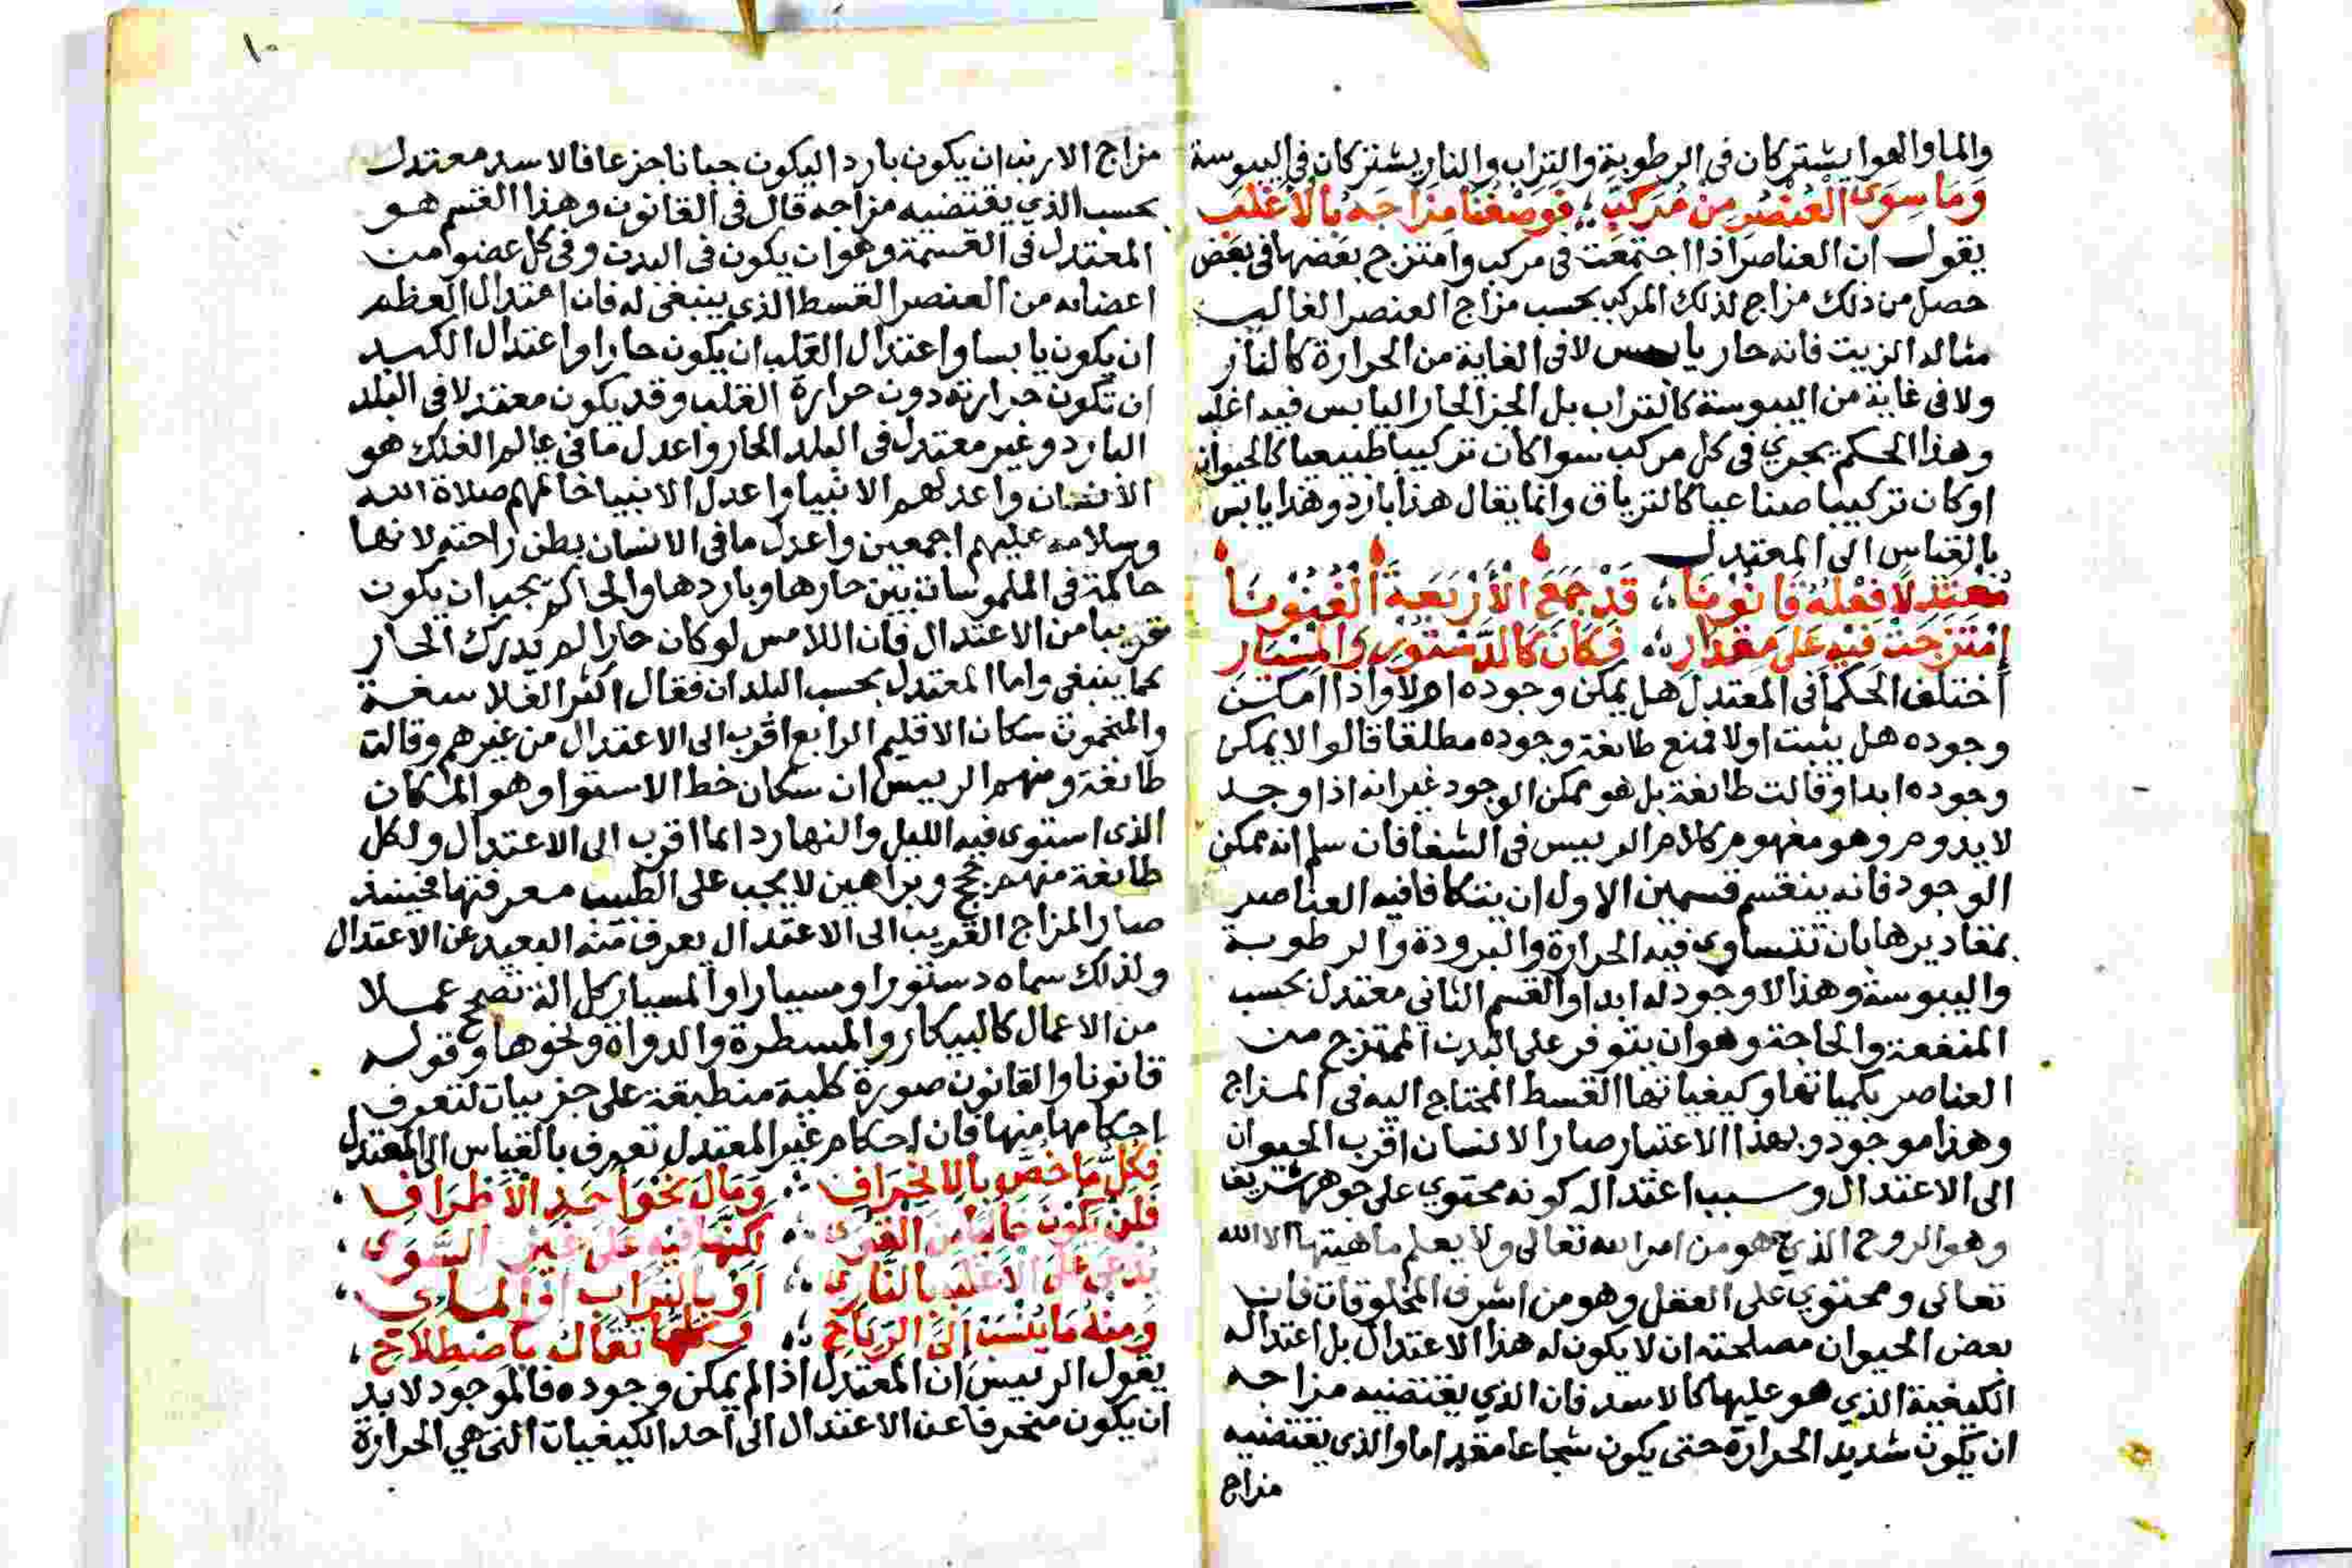 والما والهوا يشتركان فى الرطوبة والتراب والنار يشتركان فى اليبوسة
وَمَا سِوَى الْعُنْصُرِ مِنْ مُرَكَّبِ ؛ فَوَصْفُنَا مِزَاجَهُ بِالْأَغْلَبِ
يقول ان العناصر اذا اجتمعت فى مركب وامتزج بعضها فى بعض
حصل من ذلك مزاج لذلك المركب بحسب مزاج العنصر الغالب
مثاله الزيت فانه حار يابس لا فى الغاية من الحرارة كالنار
ولا فى غاية من اليبوسة كالتراب بل الجز الحار اليابس فيه اغلب
وهذا الحكم يجري فى كل مركب سوا كان تركيبا طبيعيا كالحيوان
او كان تركيبا صناعيا كالترياق وانما يقال هذا بارد وهذا يابس
بالقياس الى المعتدل
مُعْتَدِلًا فِعْلُهُ قَانُونَا ؛ قَدْ جَمَعَ الْأَرْبَعَةَ الْفُنُونَا
اِمْتَزَجَتْ فِيهِ عَلَى مِقْدَارِ ؛ فَكَانَ كَالدَّسْتُورِ وَالْمِسْبَارِ
اختلف الحكما فى المعتدل هل يمكن وجوده ام لا واذا امكن
وجوده هل يثبت اولا فمنع طائفة وجوده مطلقا قالوا لا يمكن
وجوده ابدا وقالت طائفة بل هو ممكن الوجود غير انه اذا وجد
لا يدوم وهو مفهوم كلام الرييس فى الشفا فان سلم انه ممكن
الوجود فانه ينقسم قسمين الاول ان يتكافا فيه العناصر
بمقاديرها بان تتساوى فيه الحرارة والبرودة والرطوبة
واليبوسة وهذا لا وجود له ابدا والقسم الثاني معتدل بحسب
المنفعة والحاجة وهو ان يتوفر على البدن الممتزج من
العناصر بكمياتها وكيفياتها القسط المحتاج اليه فى المزاج
وهذا موجود وبهذا الاعتبار صار الانسان اقرب الحيوان
الى الاعتدال وسبب اعتداله كونه محتوي على جوهر شريف
وهو الروح الذي هو من امر الله تعالى ولا يعلم ماهيتها الا الله
تعالى ومحتوي على العقل وهو من اشرف المخلوقات فان
بعض الحيوان مصلحته ان لا يكون له هذا الاعتدال بل اعتداله
الكيفية الذي هو عليها كالاسد فان الذي يقتضيه مزاجه
ان يكون شديد الحرارة حتى يكون شجاعا مقداما والذي يقتضيه
مزاج
١٠
مزاج الارنب ان يكون باردا ليكون جبانا جزعا فالاسد معتدل
بحسب الذي يقتضيه مزاجه قال فى القانون وهذا القسم هو
المعتدل فى القسمة وهو ان يكون فى البدن وفى كل عضو من
اعضائه من العنصر القسط الذي ينبغى له فان اعتدال العظم
ان يكون يابسا واعتدال القلب ان يكون حارا واعتدال الكبد
ان تكون حرارته دون حرارة القلب وقد يكون معتدلا فى البلد
البارد وغير معتدل فى البلد الحار واعدل ما فى عالم الفلك هو
الانسان واعدلهم الانبيا واعدل الانبيا خاتمهم صلاة الله
وسلامه عليهم اجمعين واعدل ما فى الانسان بطن راحته لانها
حاكمة فى الملموسات بين حارها وباردها والحاكم يجب ان يكون
قريبا من الاعتدال فان اللامس لو كان حارا لم يدرك الحار
كما ينبغى واما المعتدل بحسب البلدان فقال اكثر الفلاسفة
والمنجمون سكان الاقليم الرابع اقرب الى الاعتدال من غيرهم وقالت
طائفة ومنهم الرييس ان سكان خط الاستوا وهو المكان
الذى استوى فيه الليل والنهار دائما اقرب الى الاعتدال ولكل
طائفة منهم حجج وبراهين لا يجب على الطبيب معرفتها فحينئذ
صار المزاج القريب الى الاعتدال يعرف منه البعيد عن الاعتدال
ولذلك سماه دستورا ومسبارا والمسبار كل الة تصحح عملا
من الاعمال كالبيكار والمسطرة والدواة ونحوها وقوله
قانونا والقانون صورة كلية منطبقة على جزييات لتعرف
احكامها منها فان احكام غير المعتدل تعرف بالقياس الى المعتدل
فَكُلُّ مَا خُصَّ بِالْاِنْحِرَافِ ؛ وَمَالَ نَحْوَ أَحَدِ الْأَطْرَافِ
فَلَنْ يَكُونَ خَالِيًا مِنَ الْقُوَى ؛ لَكِنَّهَا فِيهِ عَلَى غَيْرِ السَّوَى
يُدْعَى عَلَى الْأَغْلَبِ بِالنَّارِى ؛ أَوْ بِالتُّرَابِ أَوْ الْمَاءِى
وَمِنْهُ مَا يُنْسَبُ إِلَى الرِّيَاحِ ؛ وَكُلُّهَا تُقَالُ بِاصْطِلَاحِ
يقول الرييس ان المعتدل اذا لم يمكن وجوده فالموجود لا بد
ان يكون منحرفا عن الاعتدال الى احد الكيفيات التى هي الحرارة